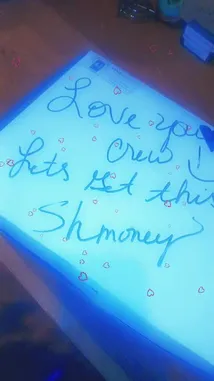 Love you
Crew :)
Lets get this
Shmoney